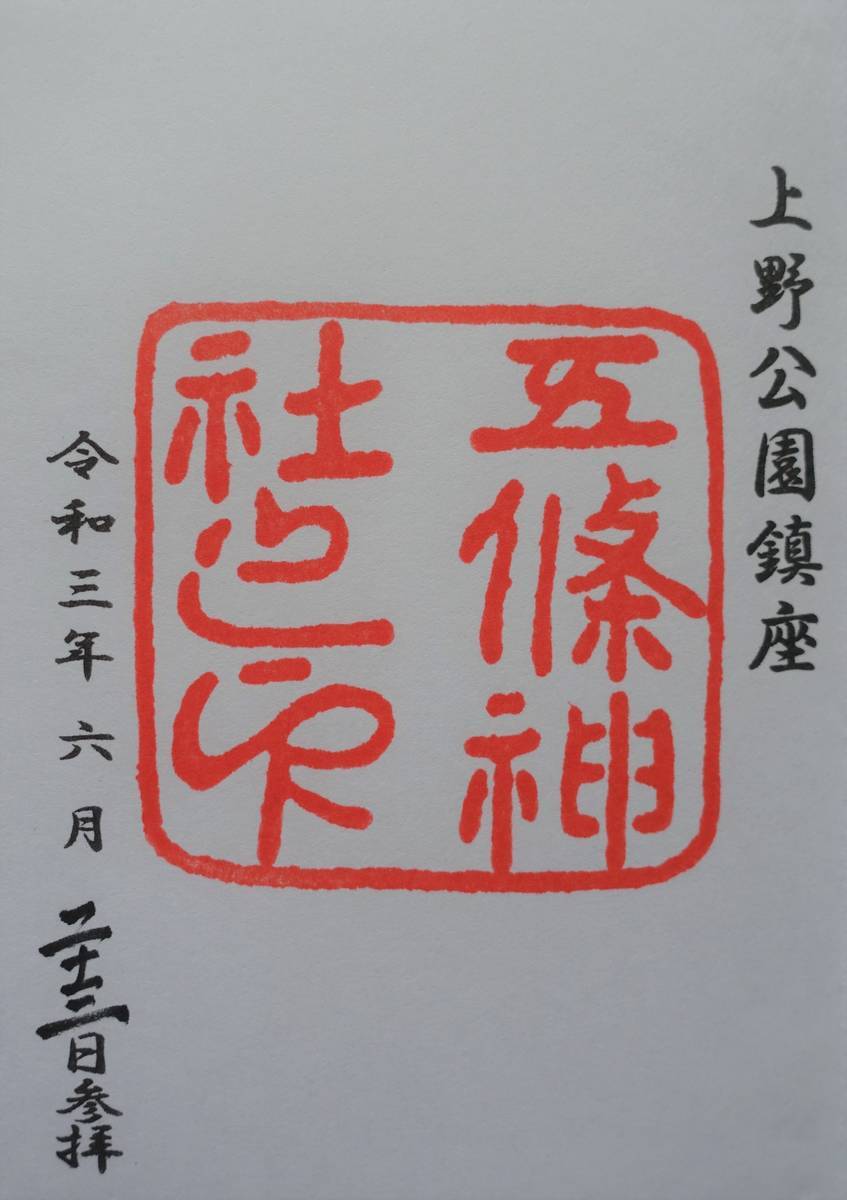 上野公園鎮座
五條神
社之印
令和三年六月二十二日参拝